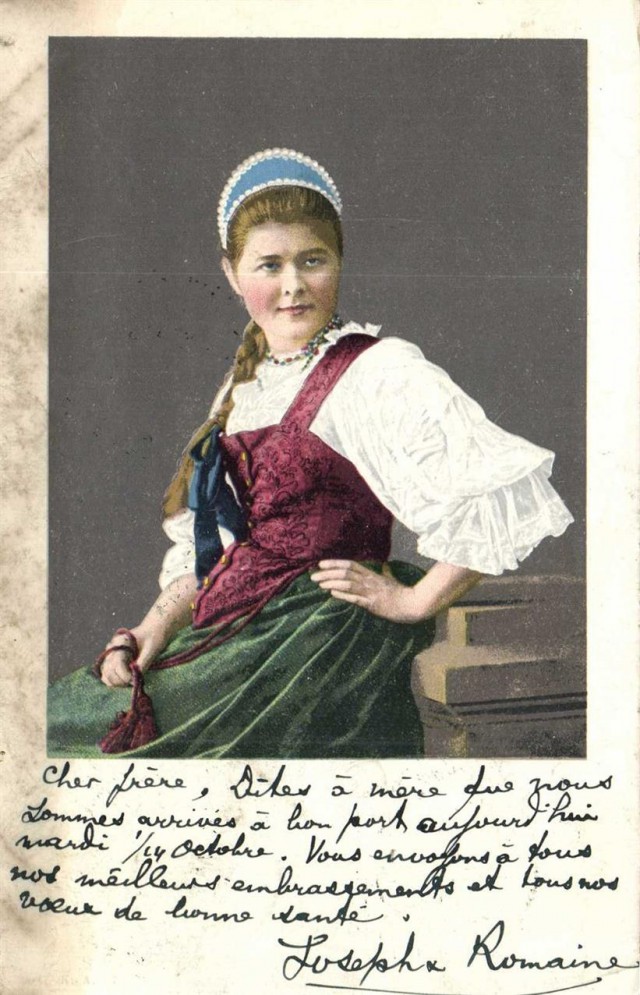 Cher frère, Dites à mère que nous
sommes arrivés à bon port aujourd'hui
mardi 1/14 Octobre. Vous envoyons à tous
nos meilleurs embrassements et tous nos
vœux de bonne santé.
Joseph & Romaine